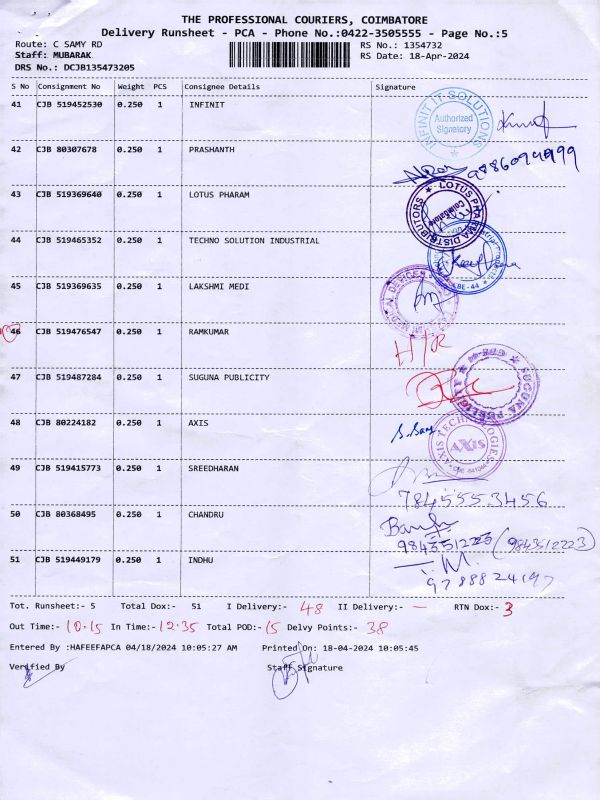 THE PROFESSIONAL COURIERS, COIMBATORE
Delivery Runsheet - PCA - Phone No.:0422-3505555 - Page No.:5
Route: C SAMY RD
RS No.: 1354732
Staff: MUBARAK
RS Date: 18-Apr-2024
DRS No.: DCJB135473205
S No Consignment No Weight PCS Consignee Details Signature
41 CJB 519452530 0.250 1 INFINIT
INFINIT IT SOLUTIONS
Authorized
Signatory
42 CJB 80307678 0.250 1 PRASHANTH
43 CJB 519369640 0.250 1 LOTUS PHARAM
LOTUS PHARMA DISTRIBUTORS
Coimbatore
44 CJB 519465352 0.250 1 TECHNO SOLUTION INDUSTRIAL
CBE-44
45 CJB 519369635 0.250 1 LAKSHMI MEDI
46 CJB 519476547 0.250 1 RAMKUMAR
47 CJB 519487284 0.250 1 SUGUNA PUBLICITY
SUGUNA PUBLICITY
48 CJB 80224182 0.250 1 AXIS
AXIS TECHNOLOGIES
AXIS
49 CJB 519415773 0.250 1 SREEDHARAN
7845553456
50 CJB 80368495 0.250 1 CHANDRU
(9843512223)
51 CJB 519449179 0.250 1 INDHU
9788824197
Tot. Runsheet:- 5 Total Dox:- 51 I Delivery:- 48 II Delivery:- — RTN Dox:- 3
Out Time:- 10.15 In Time:- 12.35 Total POD:- 15 Delvy Points:- 38
Entered By :HAFEEFAPCA 04/18/2024 10:05:27 AM Printed On: 18-04-2024 10:05:45
Verified By Staff Signature